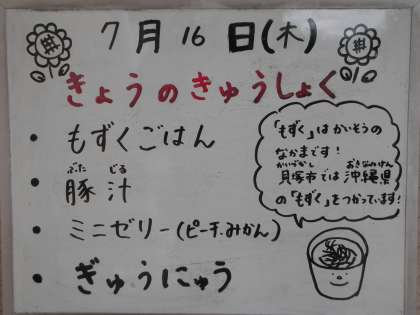 7月16日(木)
きょうのきゅうしょく
• もずくごはん
ぶた じる
• 豚汁
• ミニゼリー(ピーチ.みかん)
• ぎゅうにゅう
「もずく」はかいそうの
なかまです!
かいづかし おきなわけん
貝塚市では沖縄県
の「もずく」をつかっています!